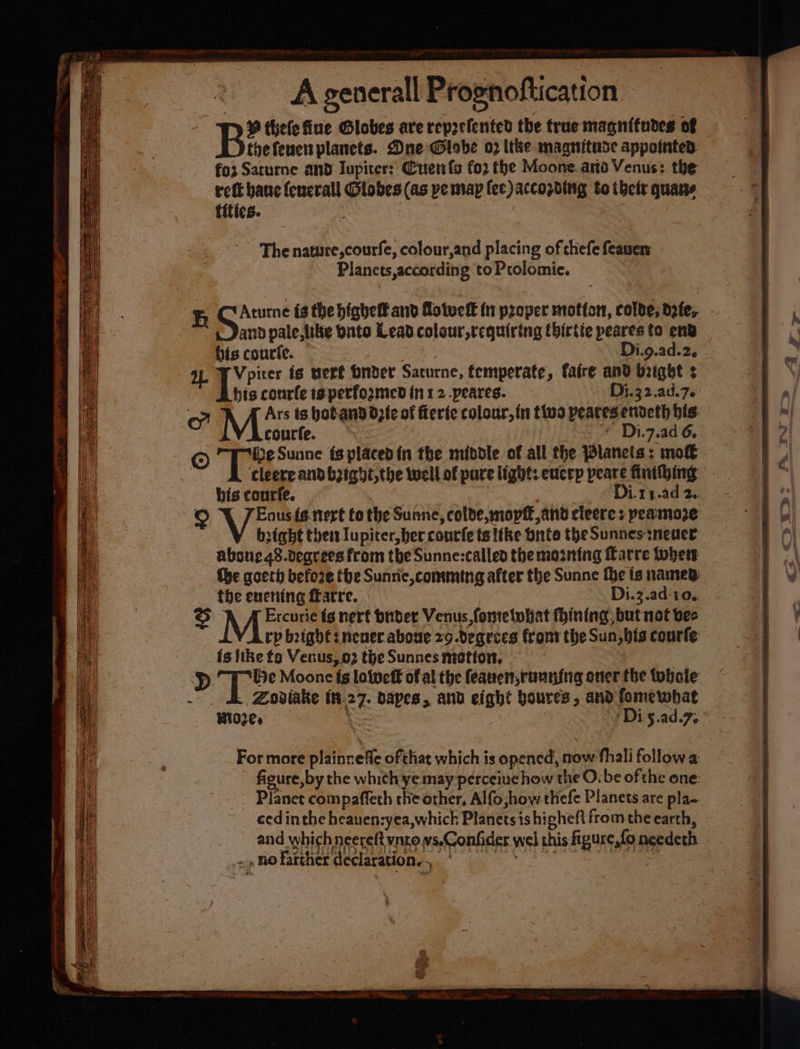 A generall Prognoſtication
BY theſe fiue Globes are repreſented the true magnitudes of
the ſeuen planets. One Globe or like magnitude appointed
for Saturne and Iupiter: Euen ſo for the Moone and Venus: the
reſt haue ſeuerall Globes (as ye may ſee) according to their quan-
tities.
The nature, courſe, colour, and placing of theſe ſeauen
Planets, according to Ptolomie.
♄ SAturne is the higheſt and ſloweſt in proper motion, colde, drie,
and pale, like vnto Lead colour, requiring thirtie yeares to end
his courſe. Di.9.ad.2.
♃ IVpiter is next vnder Saturne, temperate, faire and bright:
his courſe is performed in 12. yeares. Di.32.ad.7.
♂ MArs is hot and drie of fierie colour, in two yeares endeth his
courſe. Di.7.ad 6.
☉ THe Sunne is placed in the middle of all the Planets: moſt
cleere and bright, the well of pure light: euery yeare finiſhing
his courſe. Di.11.ad 2.
♀ VEnus is next to the Sunne, colde, moyſt, and cleere: yea more
bright then Iupiter, her courſe is like vnto the Sunnes: neuer
aboue 48. degrees from the Sunne: called the morning ſtarre when
ſhe goeth before the Sunne, comming after the Sunne ſhe is named
the euening ſtarre. Di.3.ad 10.
☿ MErcurie is next vnder Venus, ſomewhat ſhining, but not ve-
ry bright: neuer aboue 29. degrees from the Sun, his courſe
is like to Venus, or the Sunnes motion.
☽ THe Moone is loweſt of al the ſeauen, running ouer the whole
Zodiake in 27. dayes, and eight houres, and ſomewhat
more. Di 5.ad.7.
For more plainneſſe of that which is opened, now ſhall follow a
figure, by the which ye may perceiue how the Orbe of the one
Planet compaſſeth the other, Alſo, how theſe Planets are pla-
ced in the heauens: yea, which Planets is higheſt from the earth,
and which neereſt vnto vs. Conſider wel this figure, ſo needeth
no farther declaration.